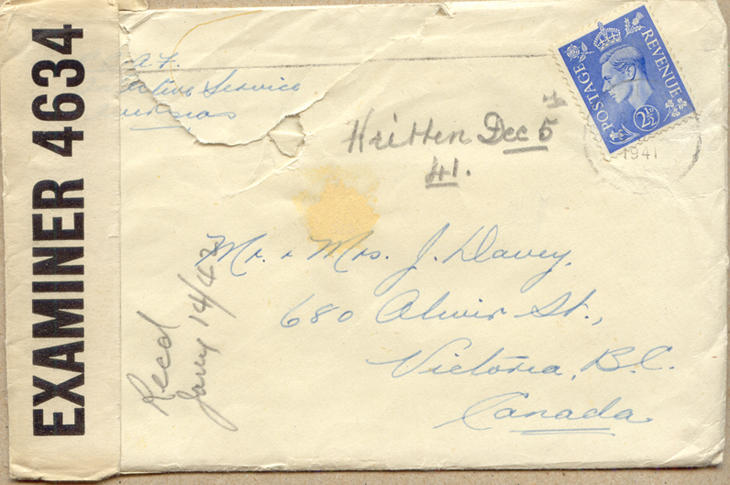 EXAMINER 4634
A.F.
Service
POSTAGE REVENUE
2½D
1941
Written Dec 5th
41.
Mr. & Mrs. J. Davey,
680 Oliver St.,
Victoria, B.C.
Canada
Recd
Jany 14/42